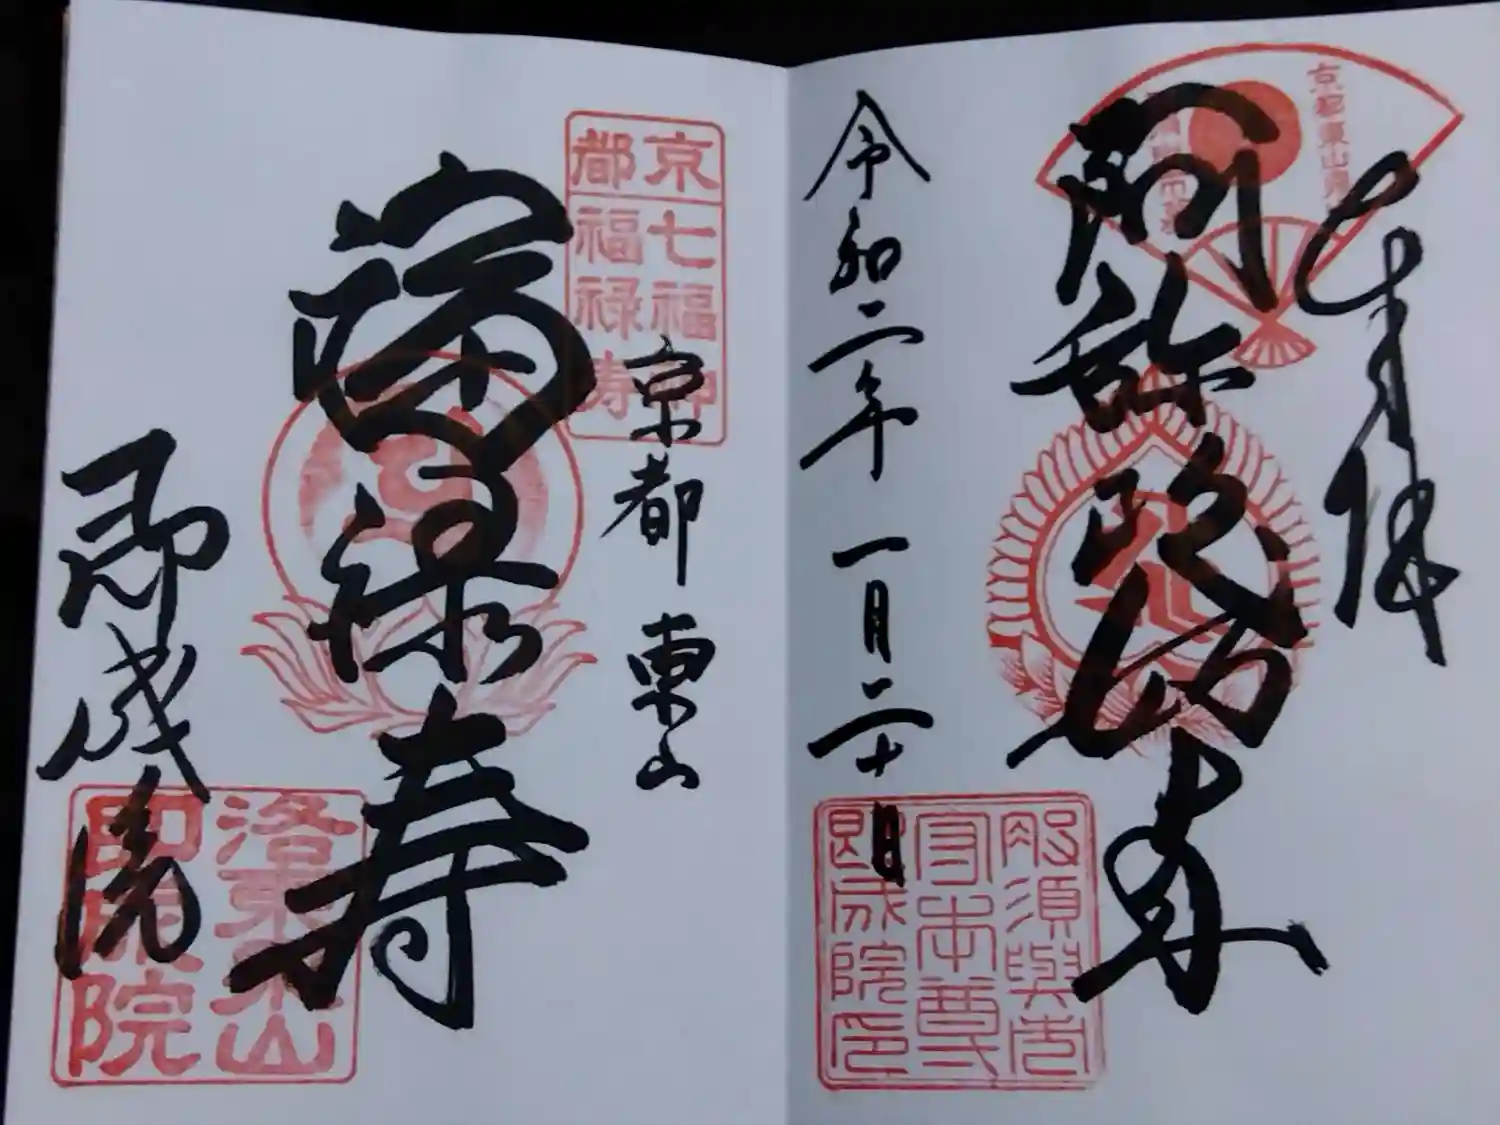 奉拝
京都東山
阿弥陀如来
令和二年 一月二十日
那須與市
守本尊
即成院印
京都
七福
福禄寿
京都 東山
福禄寿
即成院
洛東泉山
即成院